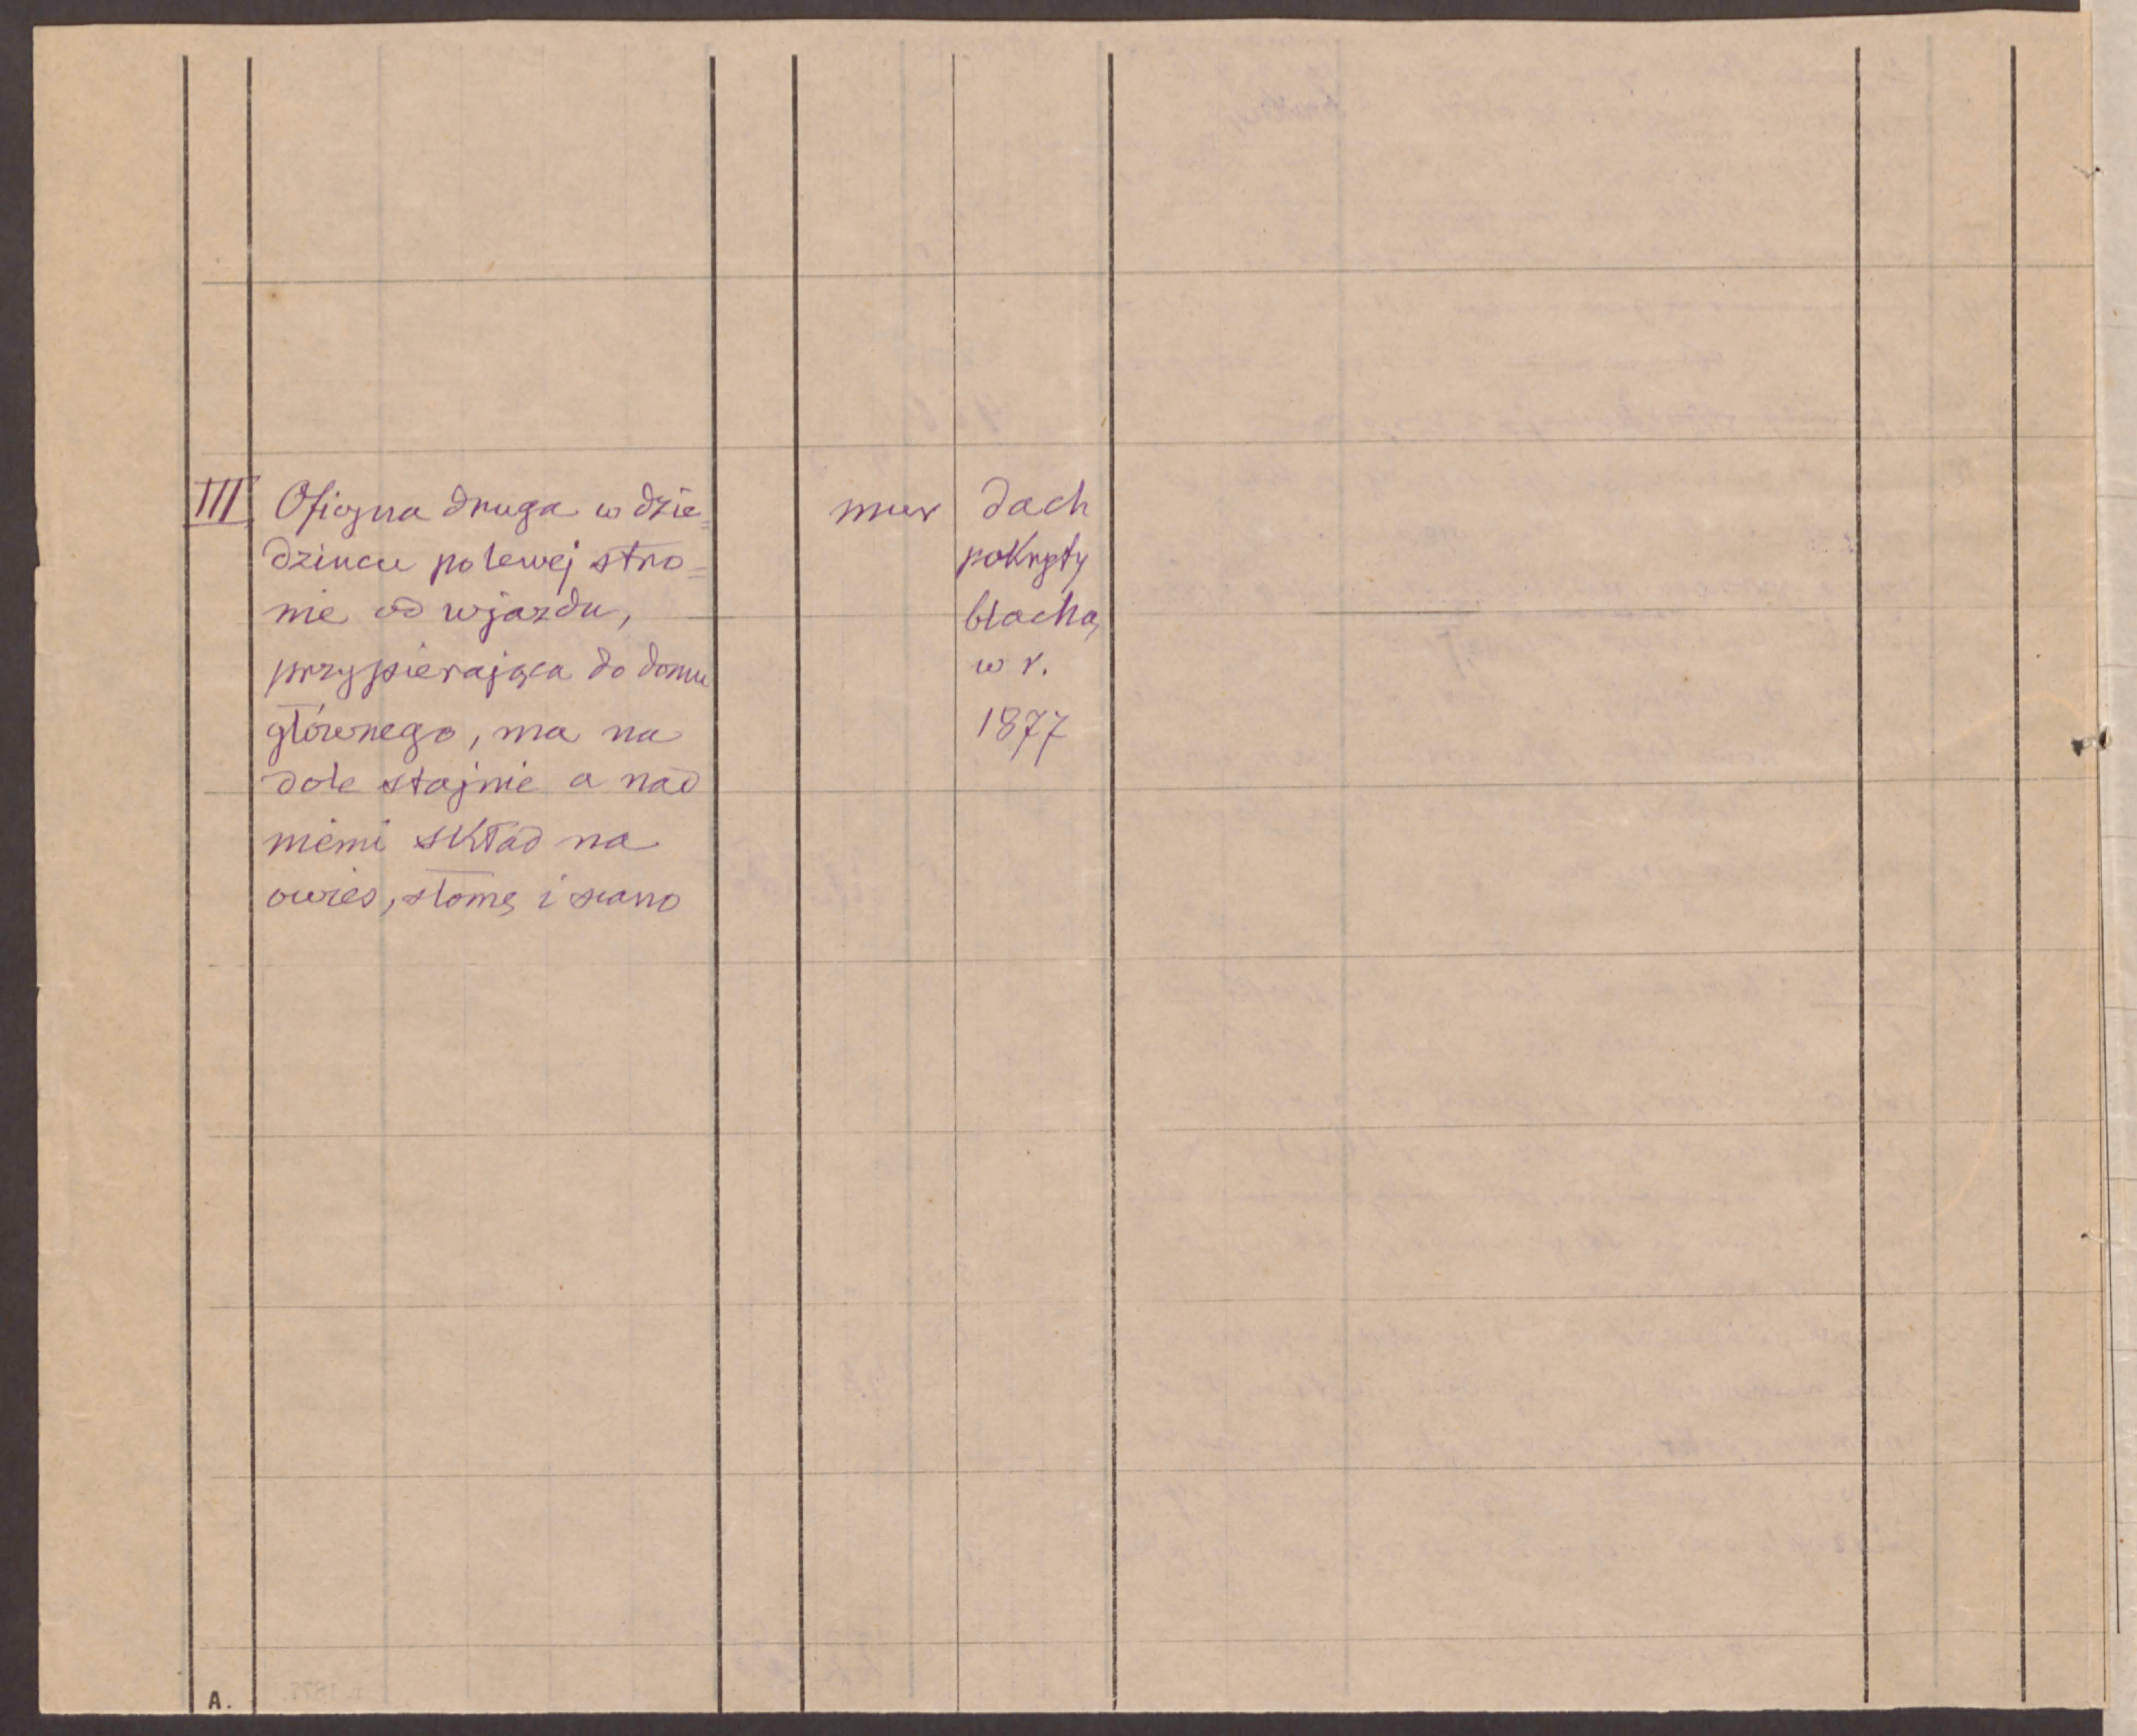 III Oficyna druga w dzie=
dzincu po lewej stro=
nie od wjazdu,
przypierająca do domu
głównego, ma na
dole stajnie a nad
niemi skład na
owies, słomę i siano
mur
dach
pokryty
blachą
w r.
1877
A.